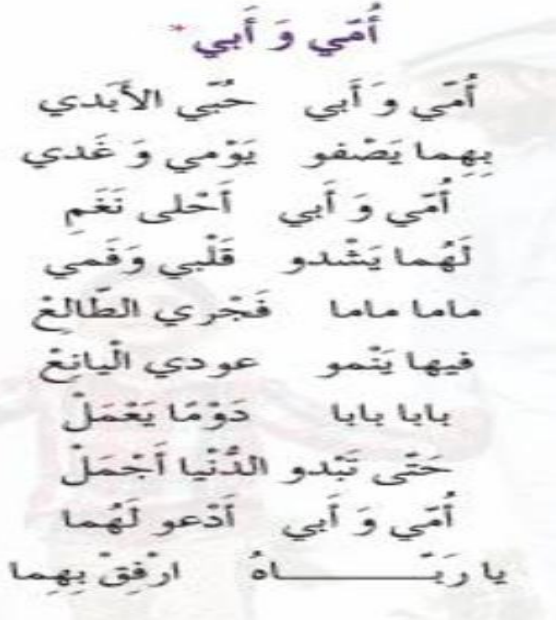 أُمّي وَ أَبي *
أُمّي وَ أَبي حُبّي الأَبَدي
بِهِما يَصْفو يَوْمي وَ غَدي
أُمّي وَ أَبي أَحْلى نَغَمِ
لَهُما يَشْدو قَلْبي وَفَمي
ماما ماما فَجْري الطّالِعْ
فيها يَنْمو عودي الْيانِعْ
بابا بابا دَوْمًا يَعْمَلْ
حَتّى تَبْدو الدُّنْيا أَجْمَلْ
أُمّي وَ أَبي أَدْعو لَهُما
يا رَبّـــــــــاهُ ارْفِقْ بِهِما